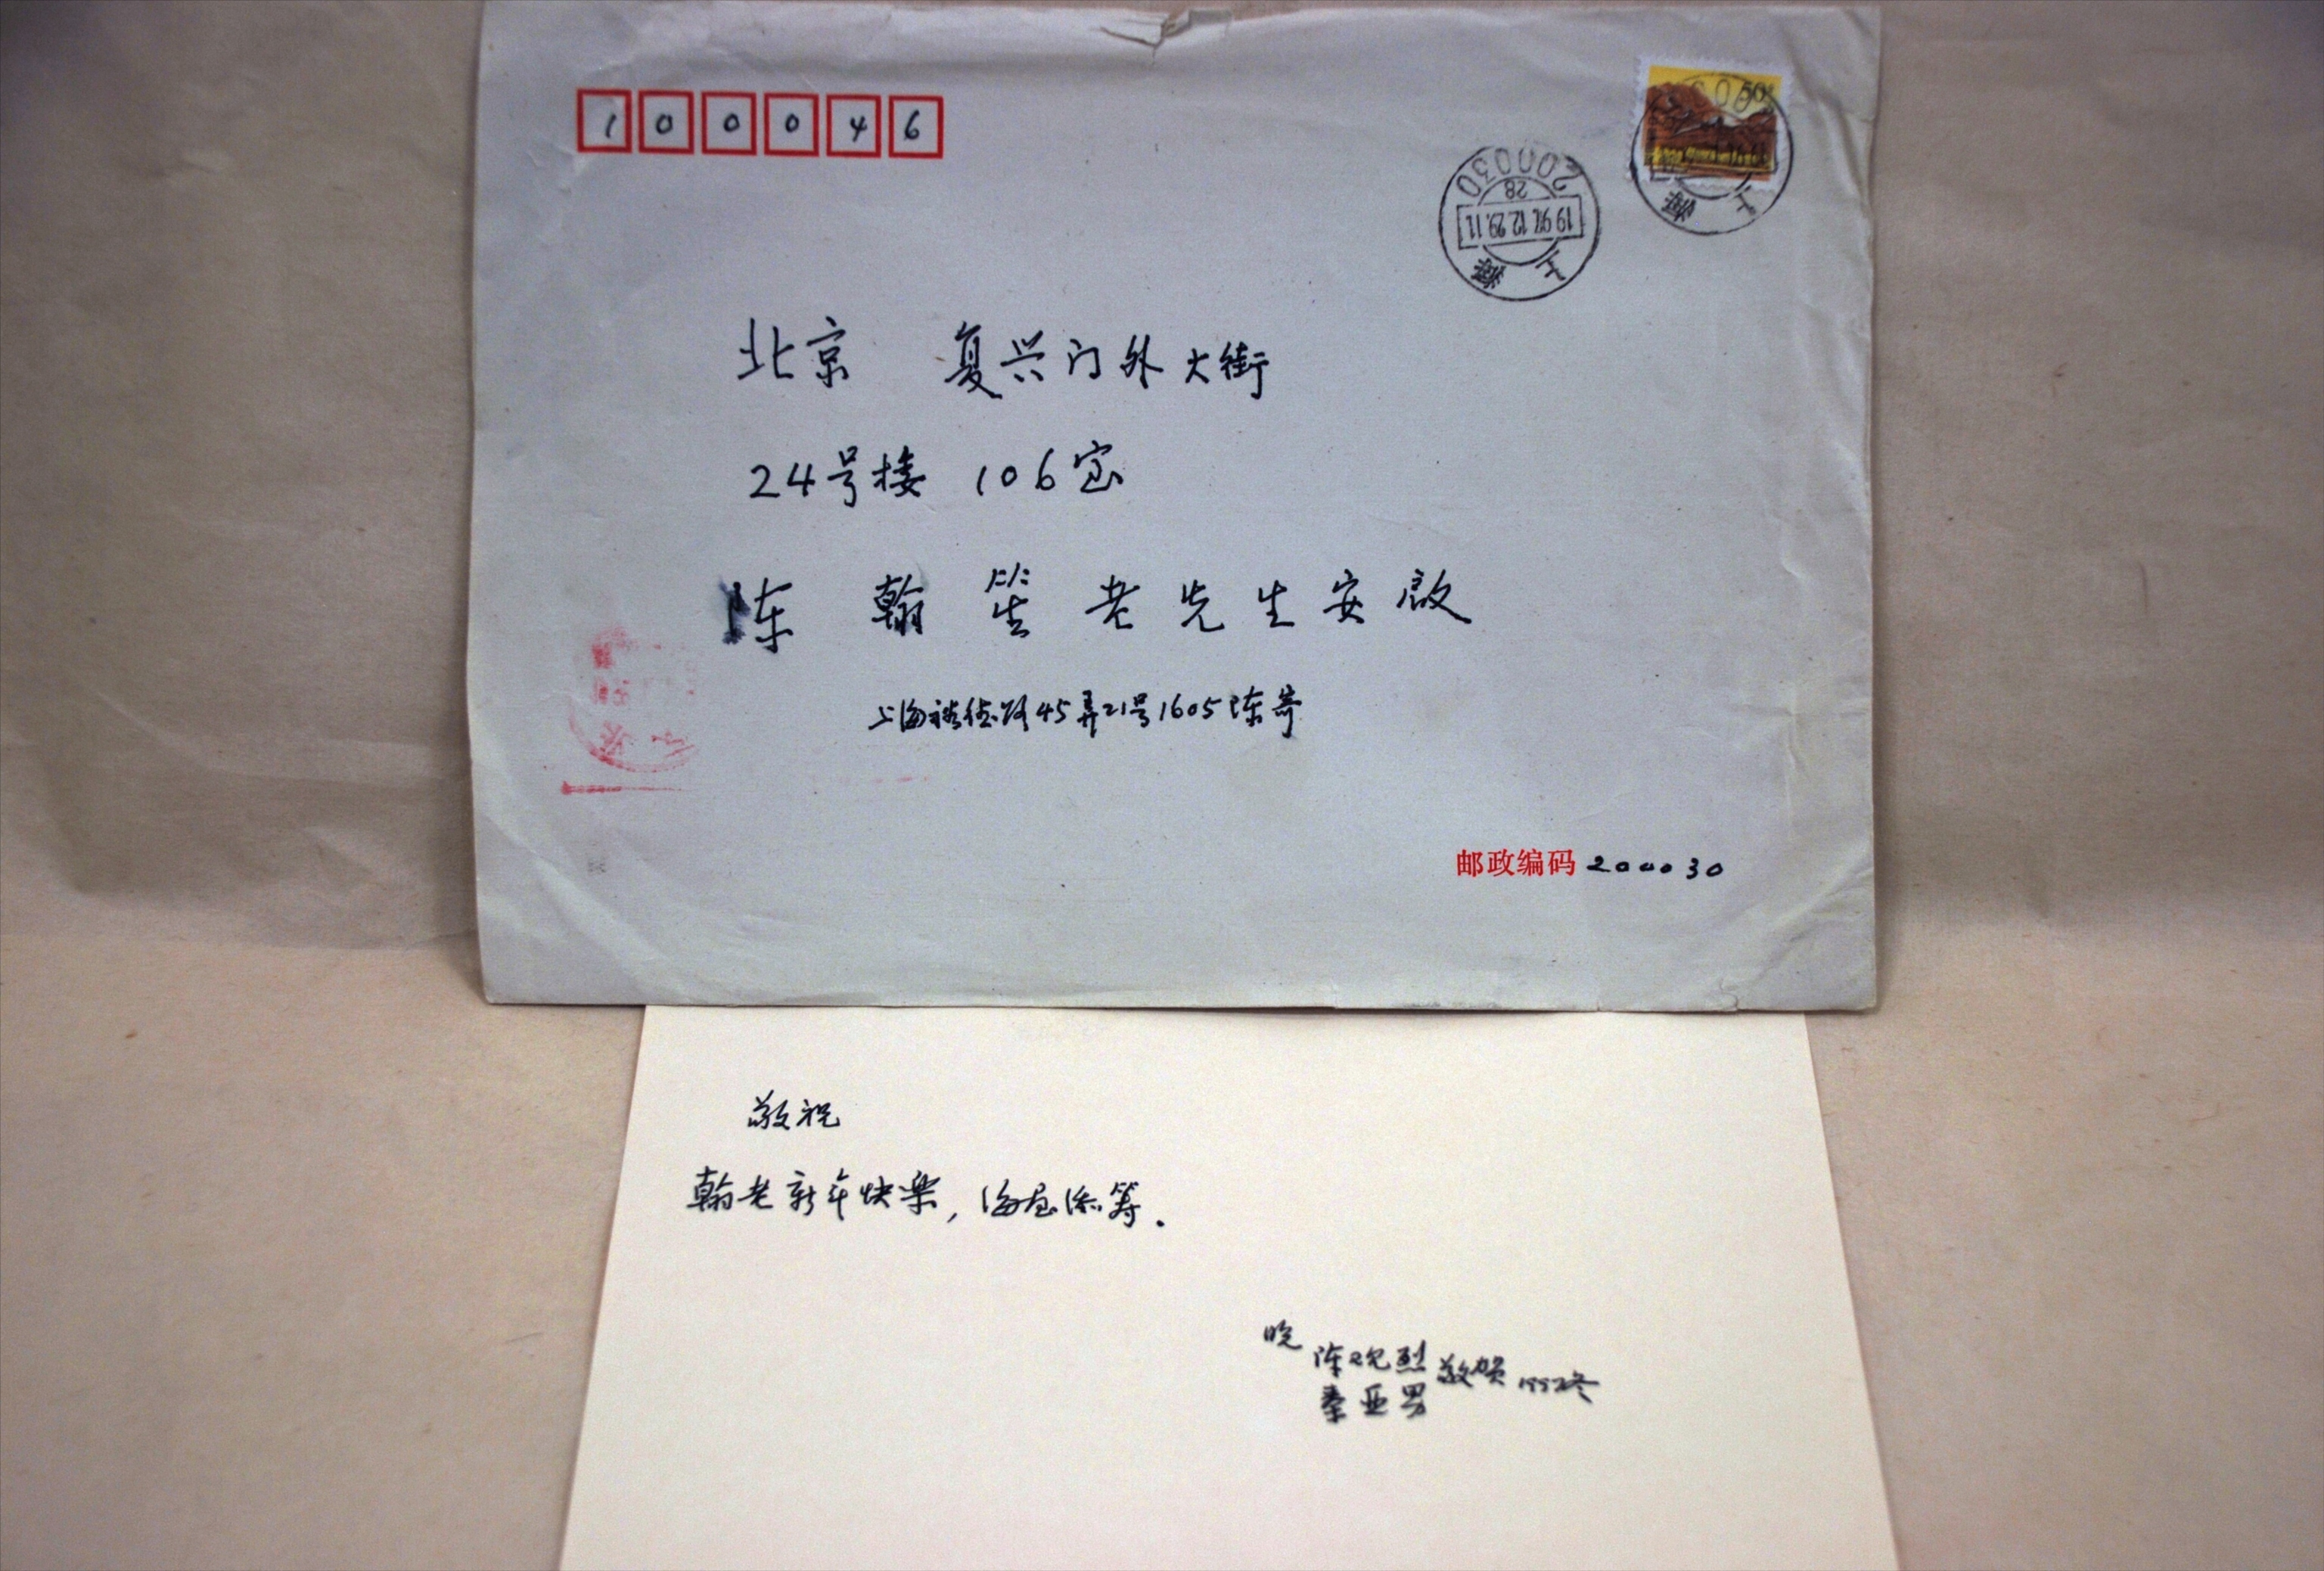 100046
50分
200030
28
1997.12.29.11
上海
上海
北京 复兴门外大街
24号楼 106室
陈翰笙老先生安启
上海裕德路45弄21号1605陈寄
邮政编码 200030
敬祝
翰老新年快樂,海屋添筹.
晚 陈观烈 敬贺 1997冬
秦亚男